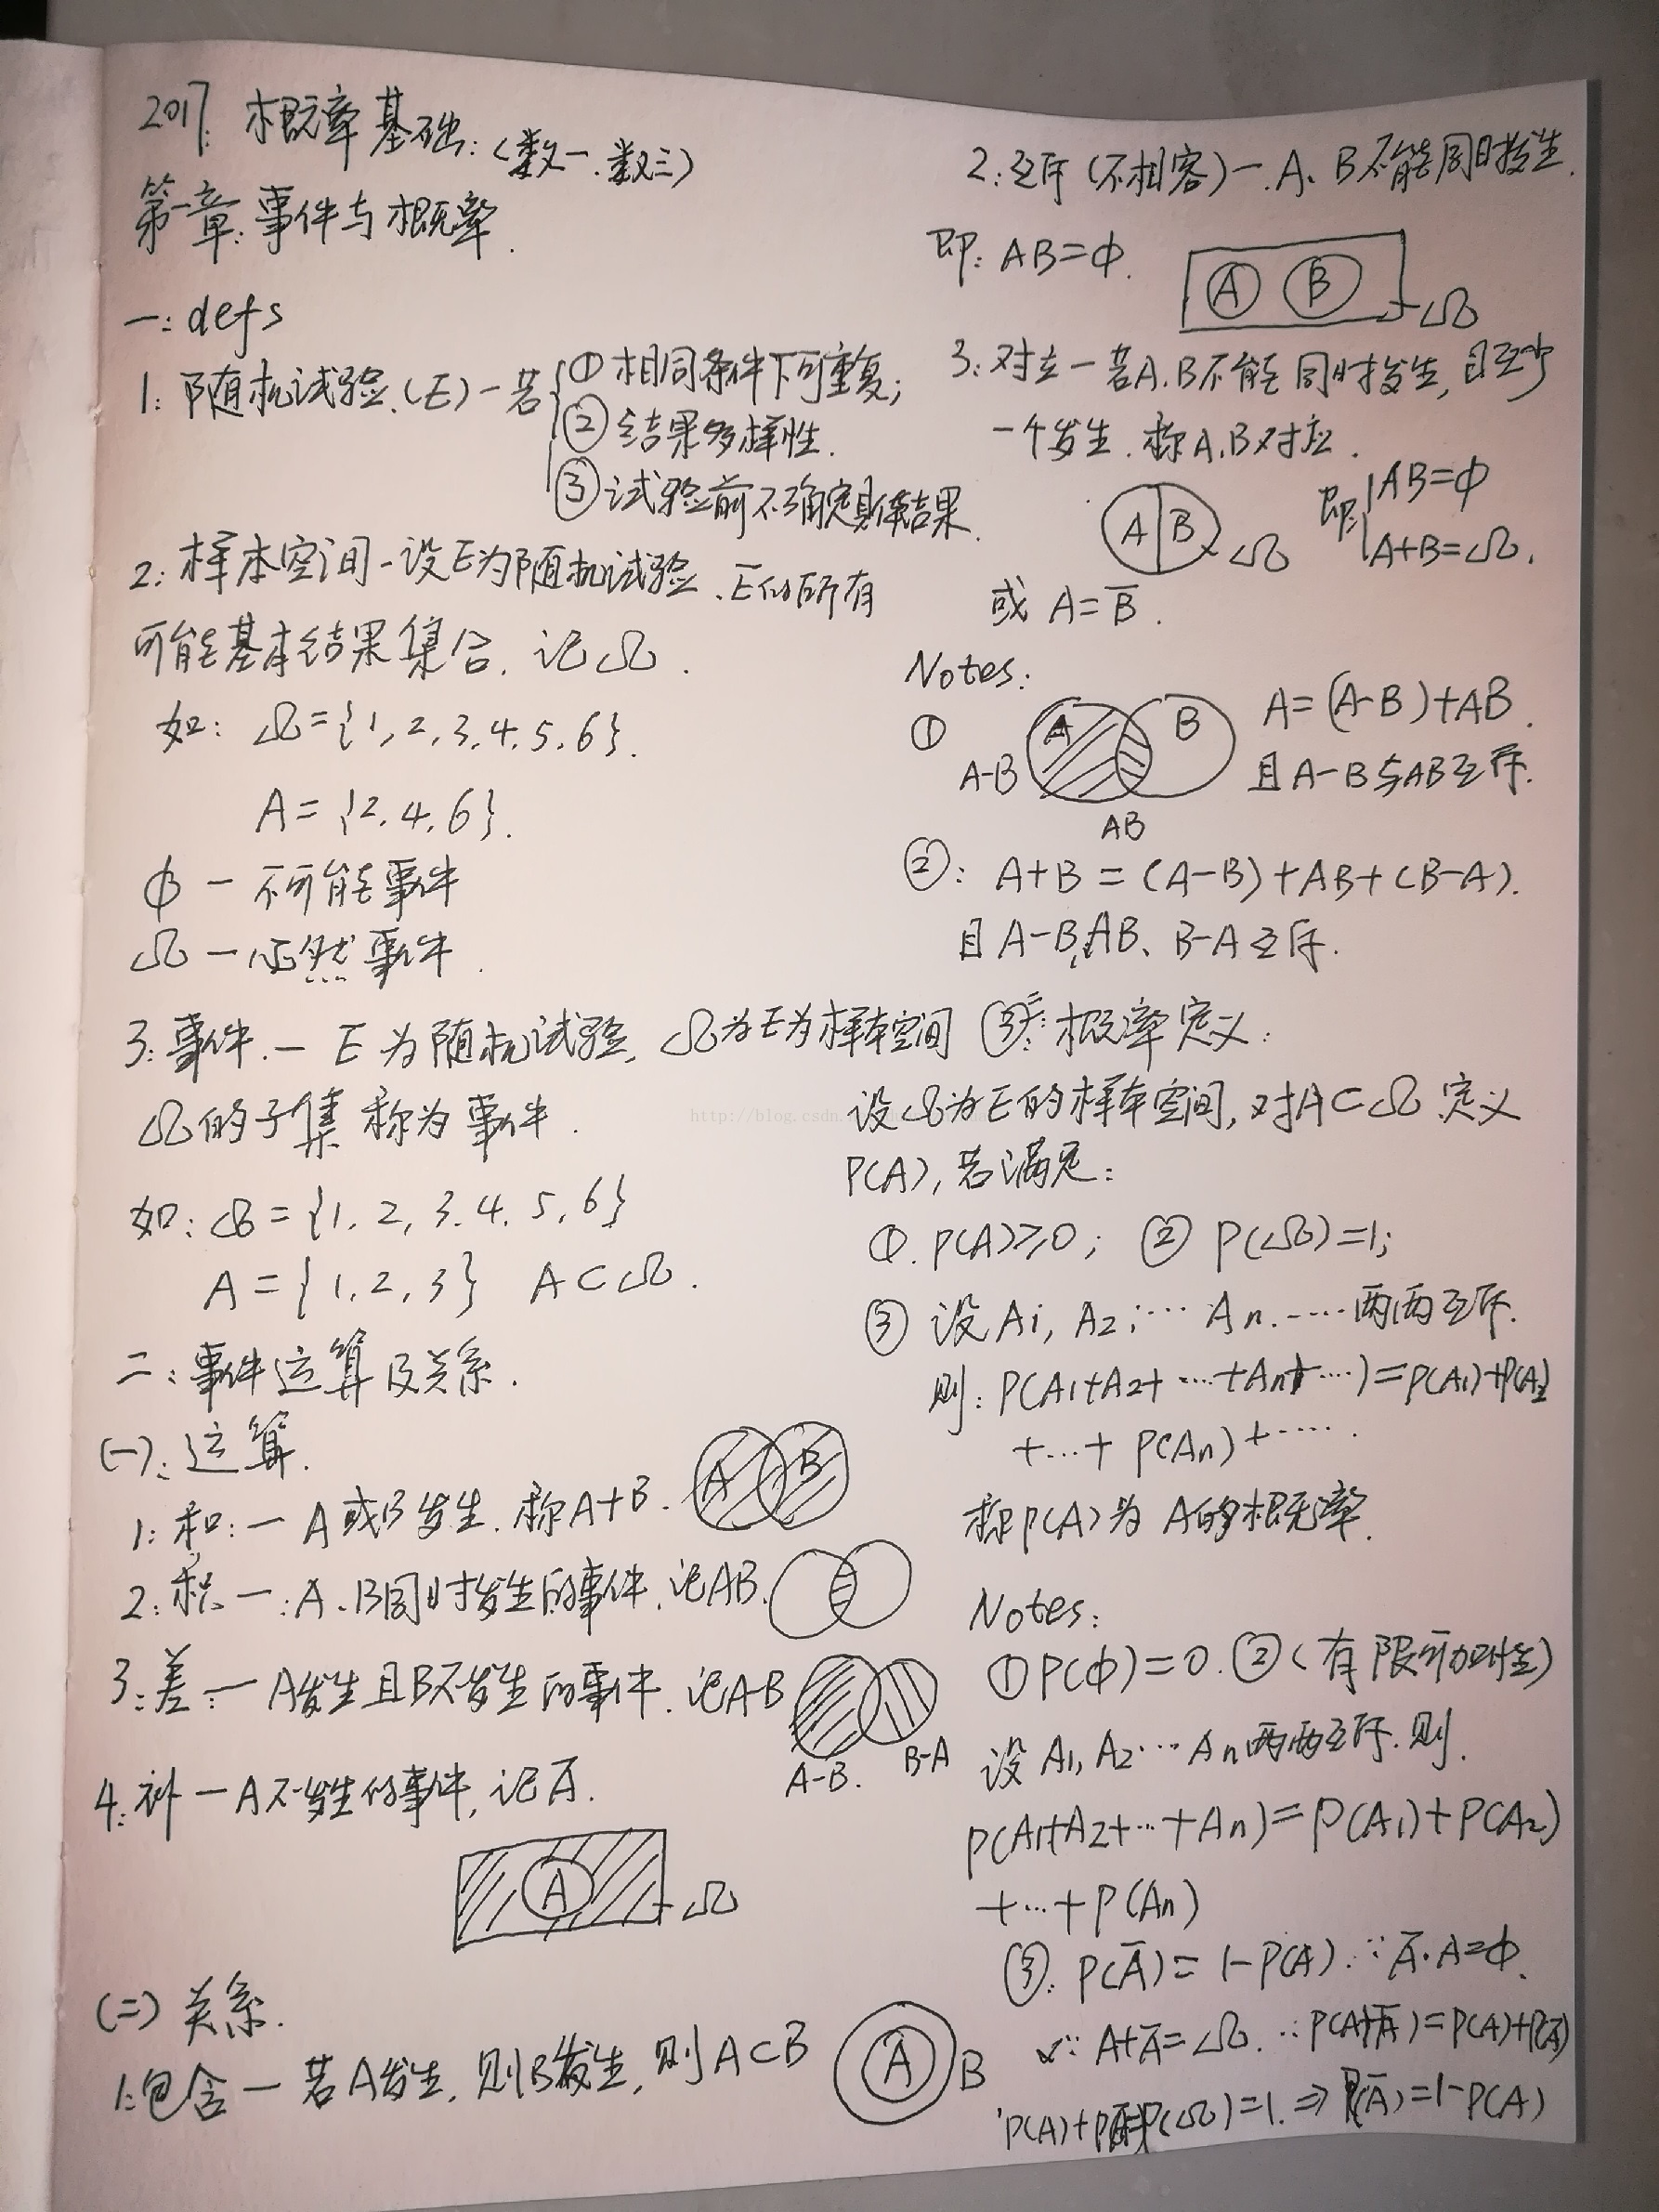 2017. 概率基础:(数一.数三)
第一章:事件与概率.
一: defs
1: 随机试验.(E)一若 ①相同条件下可重复;
②结果多样性.
③试验前不确定具体结果.
2: 样本空间-设E为随机试验.E的所有
可能基本结果集合.记Ω.
如: Ω={1,2,3,4,5,6}.
A={2,4,6}.
φ一不可能事件
Ω一必然事件.
3:事件.一E为随机试验,Ω为E为样本空间
Ω的子集称为事件.
如:Ω={1,2,3,4,5,6}
A={1,2,3} A⊂Ω.
二:事件运算及关系.
(一):运算.
1:和:一A或B发生.称A+B.
A B
2:积一:A、B同时发生的事件.记AB.
3:差:一A发生且B不发生的事件.记A-B
A-B. B-A
4:补一A不发生的事件,记A̅.
A Ω
(二)关系.
1:包含一若A发生,则B发生,则A⊂B
A B
2:互斥(不相容)一.A、B不能同时发生.
即:AB=φ.
A B Ω
3:对立一若A.B不能同时发生,且至少
一个发生.称A.B对应.
A B Ω 即: AB=φ
A+B=Ω.
或 A=B̅.
Notes:
① A B A=(A-B)+AB.
A-B 且A-B与AB互斥.
AB
②: A+B=(A-B)+AB+(B-A).
且A-B,AB、B-A互斥.
三:概率定义:
设Ω为E的样本空间,对A⊂Ω 定义
P(A),若满足:
①.P(A)≥0; ②P(Ω)=1;
③设A1,A2,⋯An.⋯⋯两两互斥.
则:P(A1+A2+⋯+An+⋯)=P(A1)+P(A2)
+⋯+P(An)+⋯⋯.
称P(A)为A的概率.
Notes:
①P(φ)=0.②(有限可加性)
设A1,A2⋯An两两互斥.则.
P(A1+A2+⋯+An)=P(A1)+P(A2)
+⋯+P(An)
③.P(A̅)=1-P(A).∵A̅·A=φ.
∵A+A̅=Ω.∴P(A+A̅)=P(A)+P(A̅)
P(A)+P(A̅)=P(Ω)=1.⇒P(A̅)=1-P(A)